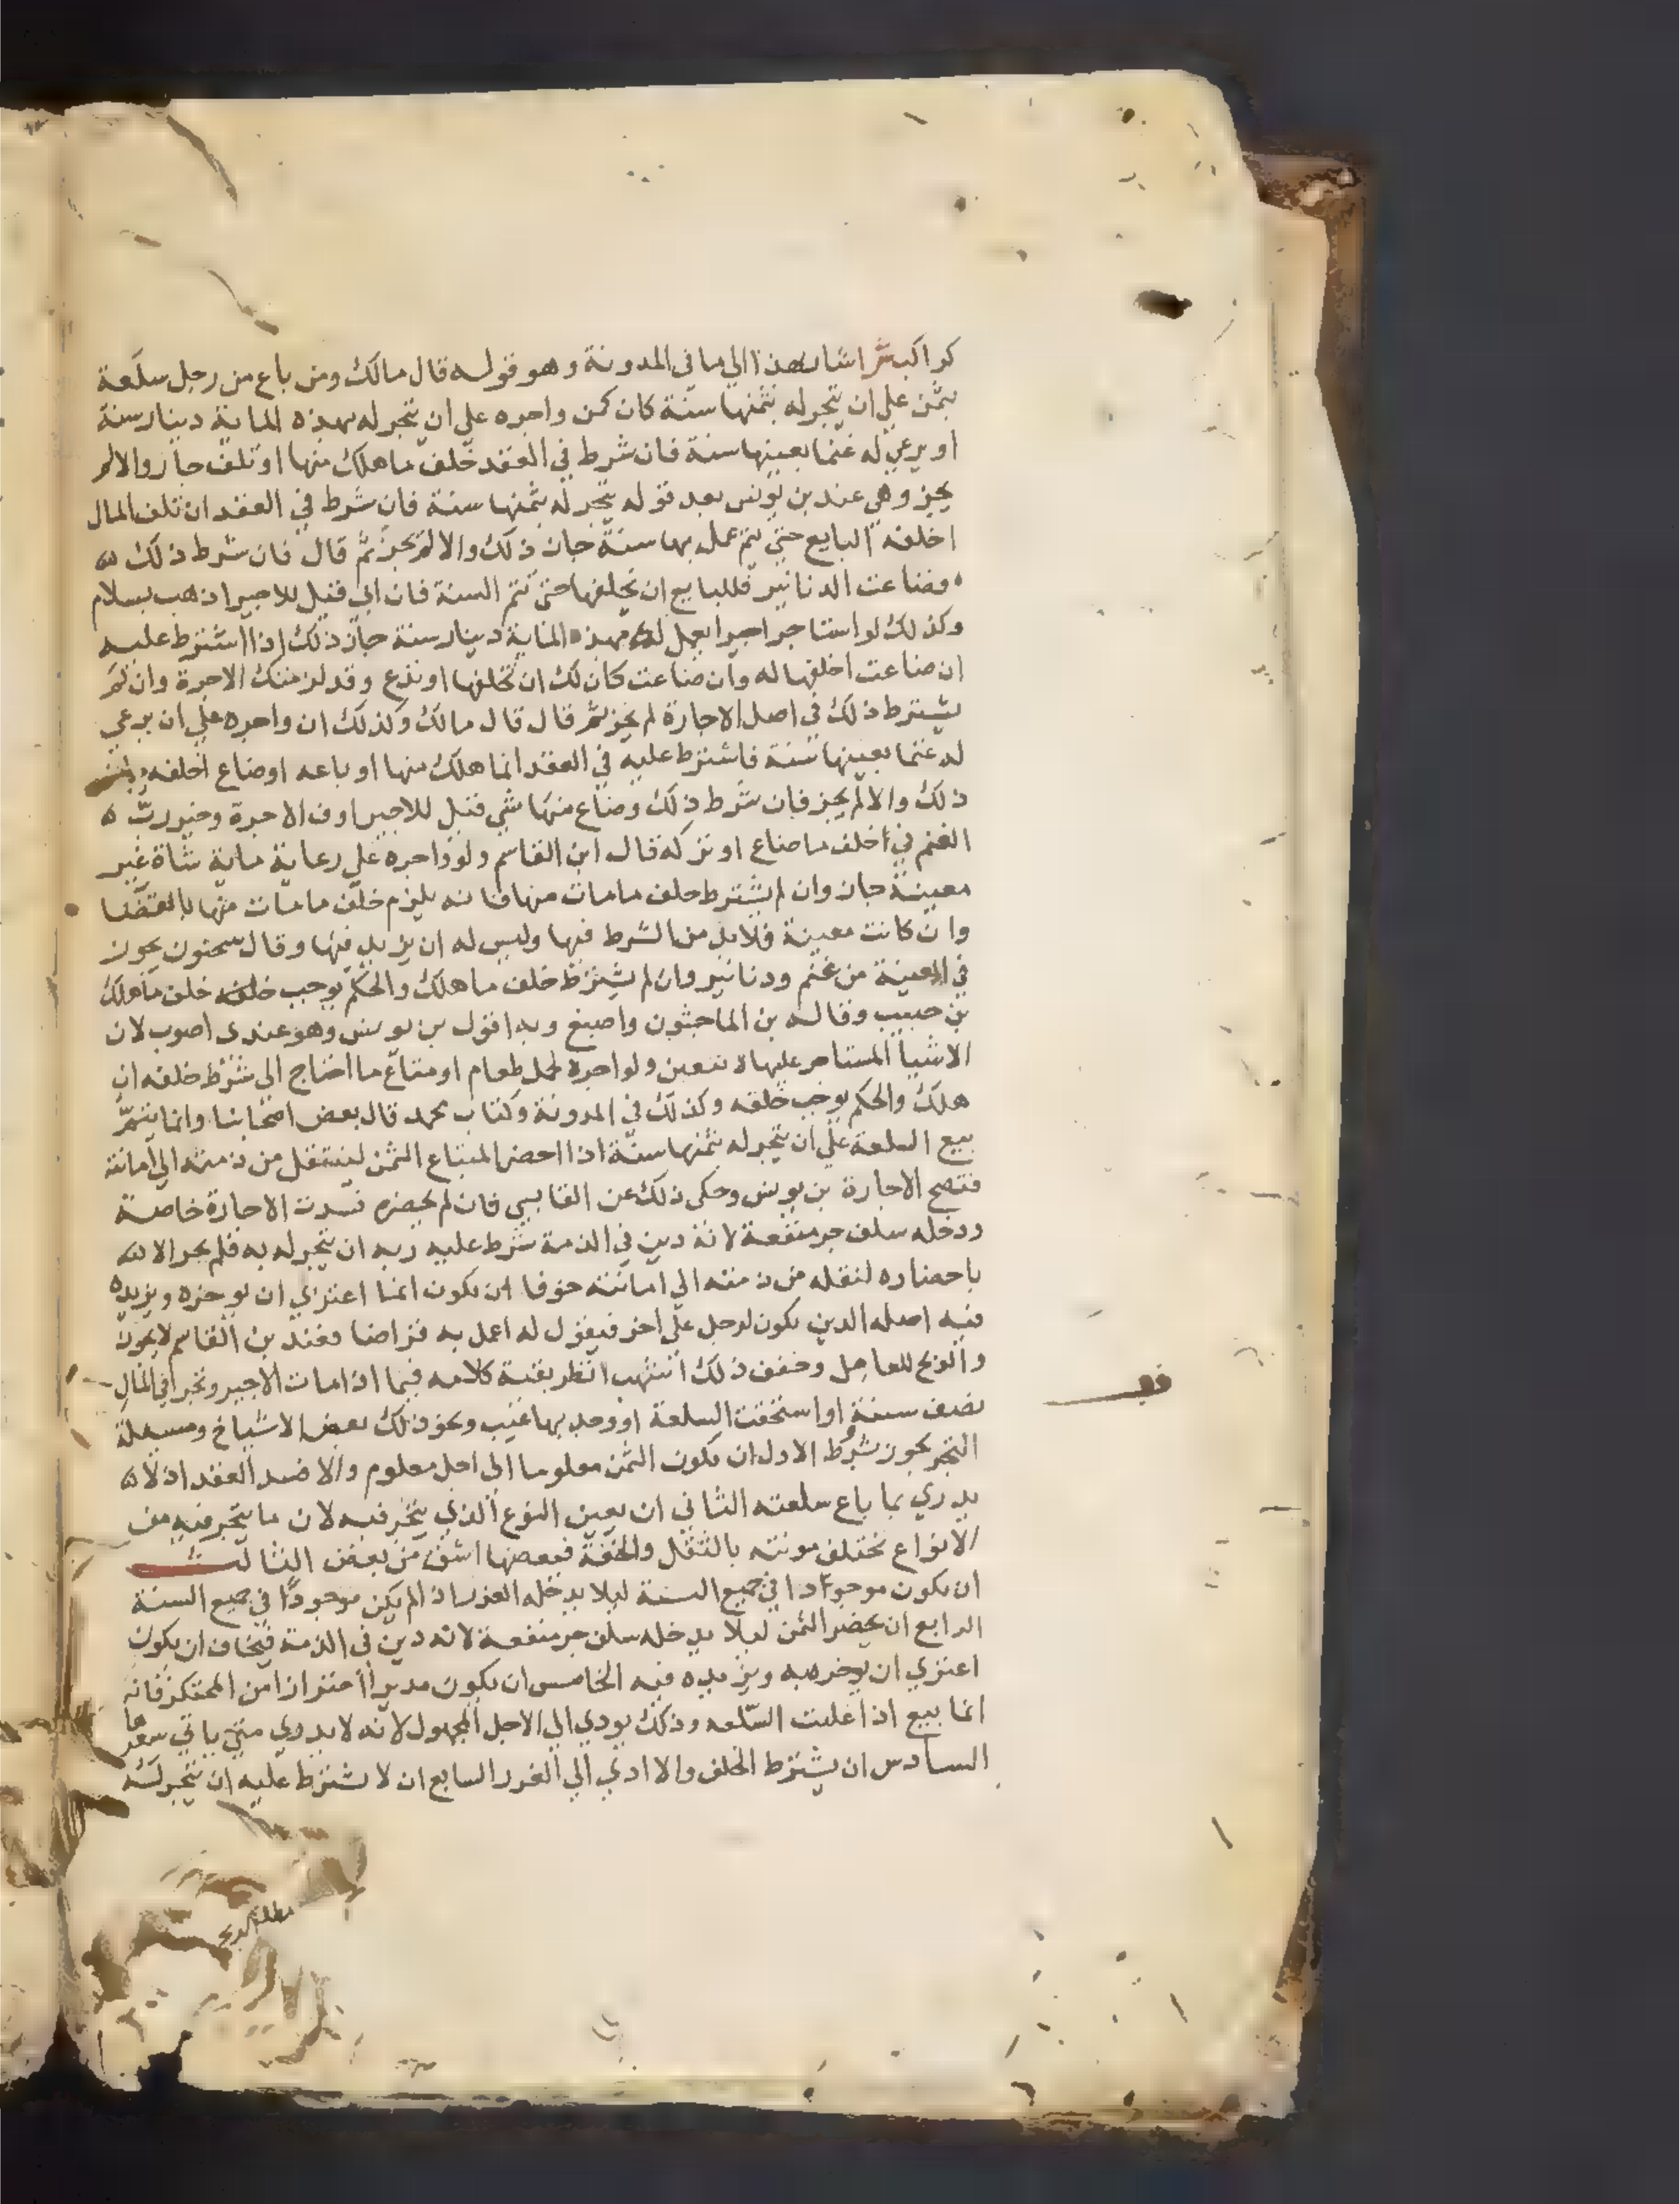 اشار بهذا الي ما في المدونة وهو قوله قال مالك ومن باع من رجل سلعة
بثمن علي ان يتجر له بثمنها سنة كان كمن واجره علي ان يتجر له بهذه الماية دينار سنة
او يرعي له غنما بعينها سنة فان شرط في العقد خلف ما هلك منها او تلف جاز والا لم
يجز وهي عند بن يونس بعد قوله يتجر له بثمنها سنة فان شرط في العقد ان تلف المال
اخلفه البايع حتي يتم عمل بها سنة جاز ذلك والا لم يجز ثم قال فان شرط ذلك
فضاعت الدنانير فللبايع ان يخلفها حتي تتم السنة فان ابي قيل للاجير اذهب بسلام
وكذلك لو استاجر اجيرا يعمل له بهذه الماية دينار سنة جاز ذلك اذا اشترط عليه
ان ضاعت اخلفها له وان ضاعت كان لك ان تخلفها او تدع وقد لزمتك الاجرة وان لم
يشترط ذلك في اصل الاجارة لم يجز ثم قال قال مالك وكذلك ان واجره علي ان يرعي
له غنما بعينها سنة فاشترط عليه في العقد انما هلك منها او باعه او ضاع اخلفه
ذلك والا لم يجز فان شرط ذلك وضاع منها شي قيل للاجير اوف الاجرة وخير رب
الغنم في اخلف ما ضاع او تركه قال ابن القاسم ولو واجره علي رعاية ماية شاة غير
معينة جاز وان لم يشترط خلف ما مات منها فانه يلزم خلف ما مات منها بالقضا
وان كانت معينة فلا بد من الشرط فيها وليس له ان يزيد فيها وقال سحنون يجوز
في المعينة من غنم ودنانير وان لم يشترط خلف ما هلك والحكم يوجب خلف ما هلك
بن حبيب وقاله بن الماجشون واصبغ وبه اقول بن يونس وهو عندي اصوب لان
الاشيا المستاجر عليها لا تتعين ولو اجره لحمل طعام او متاع ما احتاج الي شرط خلفه ان
هلك والحكم يوجب خلفه وكذلك في المدونة وكتاب محمد قال بعض اصحابنا وانما يتم
بيع السلعة علي ان يتجر له بثمنها سنة اذا احضر المبتاع الثمن لينتقل من ذمته الي امانته
فتصح الاجارة بن يونس وحكي ذلك عن القابسي فان لم يحضره فسدت الاجارة خاصة
ودخله سلف جر منفعة لانه دين في الذمة شرط عليه ربه ان يتجر له به فلم يجز الا
باحضاره لنقله من ذمته الي امانته خوفا ان يكون انما اعتزي ان يوخره ويزيده
فيه اصله الدين يكون لرجل علي اخر فيقول له اعمل به قراضا فعند بن القاسم لا يجوز
والربح للعامل وخفف ذلك اشهب انظر بقية كلامه فيما اذا مات الاجير وتجر في المال
نصف سنة او استحقت السلعة او وجد بها عيب ونحو ذلك بعض الاشياخ ومسيلة
التجر يجوز بشرط الاول ان يكون الثمن معلوما الي اجل معلوم والا فسد العقد اذ لا
يدري بما باع سلعته الثاني ان يعين النوع الذي يتجر فيه لان ما يتجر فيه من
الانواع تختلف مونته بالثقل والخفة فبعضها اشق من بعض الثالث
ان يكون موجودا في جميع السنة ليلا يدخله الغرر اذ الم يكن موجودا في جميع السنة
الرابع ان يحضر الثمن ليلا يدخله سلف جر منفعة لانه دين في الذمة فيخاف ان يكون
اعتزي ان يوخره به ويزيده فيه الخامس ان يكون مديرا احترازا من المحتكر فانه
انما يبيع اذا غلت السلعه وذلك يودي الي الاجل المجهول لانه لا يدري متي ياتي سعرها
السادس ان يشترط الخلف والا ادي الي الغرر السابع ان لا يشترط عليه ان يتجر له
قف